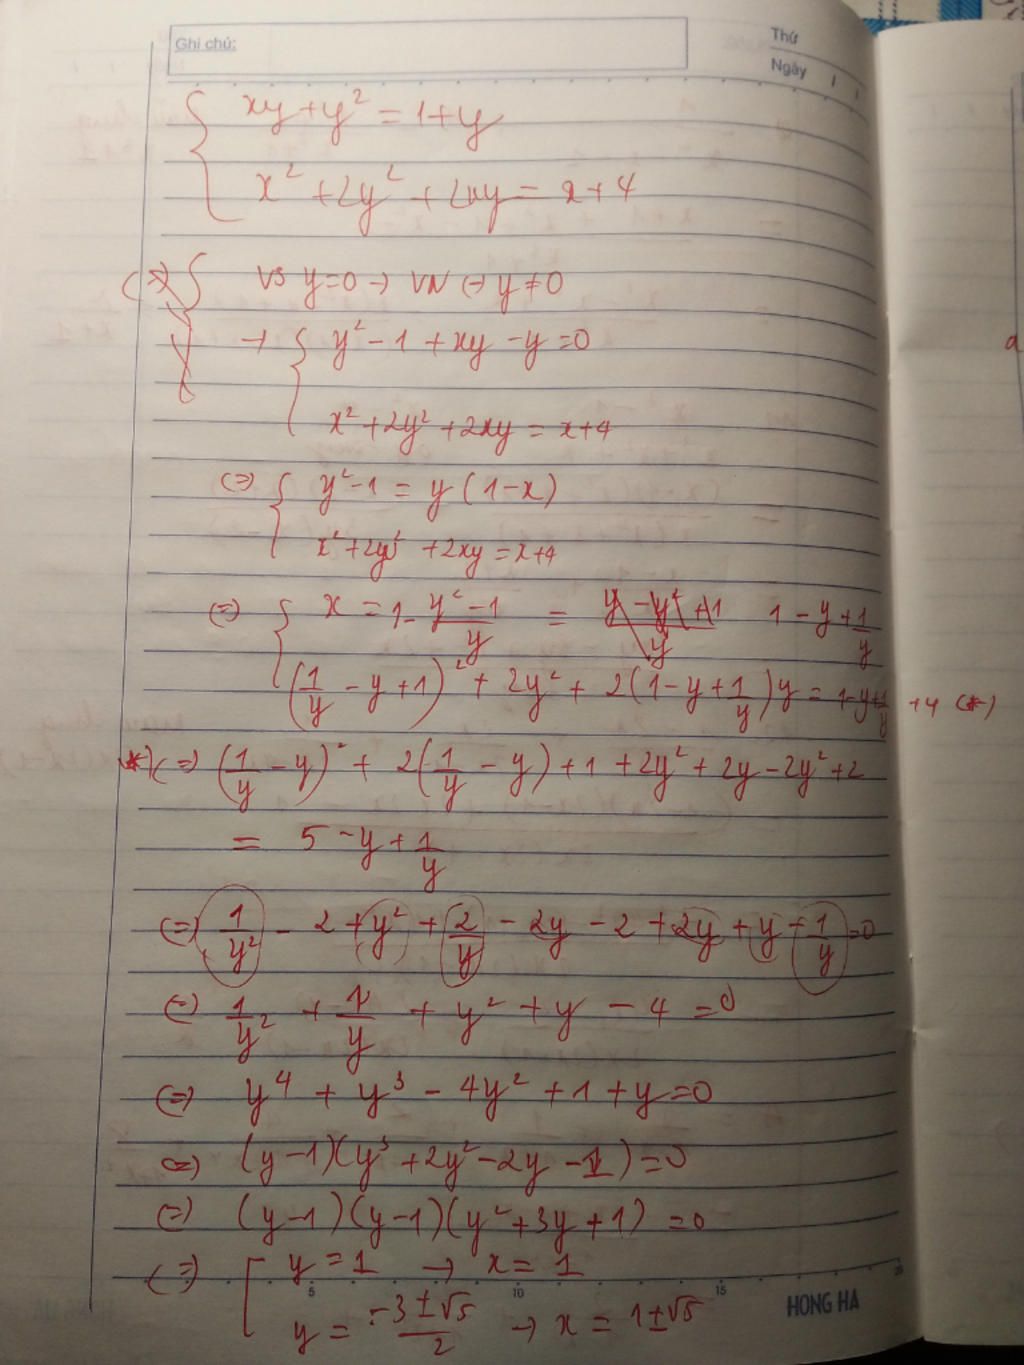 Ghi chú:
Thứ
Ngày / /
{ xy + y² = 1 + y
x² + 2y² + 2xy = x + 4
(=) { Vs y = 0 → VN (→ y ≠ 0
→ { y² - 1 + xy - y = 0
x² + 2y² + 2xy = x + 4
(=) { y² - 1 = y (1 - x)
x² + 2y² + 2xy = x + 4
(=) { x = 1 - (y² - 1)/y = 1 - y + 1/y
(1/y - y + 1)² + 2y² + 2(1 - y + 1/y)y = 1 - y + 1/y + 4 (*)
(*) (=) (1/y - y)² + 2(1/y - y) + 1 + 2y² + 2y - 2y² + 2
= 5 - y + 1/y
(=) 1/y² - 2 + y² + 2/y - 2y - 2 + 2y + y - 1/y = 0
(=) 1/y² + 1/y + y² + y - 4 = 0
(=) y⁴ + y³ - 4y² + 1 + y = 0
(=) (y - 1)(y³ + 2y² - 2y - 1) = 0
(=) (y - 1)(y - 1)(y² + 3y + 1) = 0
(=) [ y = 1 → x = 1
5 10 15 20
HONG HA
y = (-3 ± √5)/2 → x = 1 ± √5